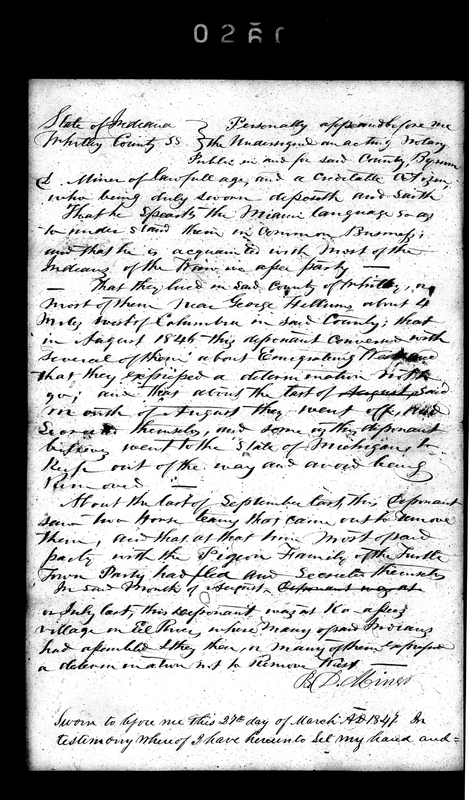 0260
State of Indiana } Personally appeared before me
Whitley County SS } the Undersigned an acting Notary
Public in and for said County Byron
D. Miner of lawful age, and a creditable Citizen,
who being duly sworn deposeth and saith
That he speaks the Miami language so as
to under stand them in common Business;
and that he is acquainted with most of the
Indians of the party —
— That they lived in said County of Whitley, or
most of them near George about 4
Miles west of Columbia in said County; that
in August 1846 this deponant conversed with
several of them about Emigrating West and
that they expressed a determination not to
go; and that about the last of August said
month of August they went off, and
Secreted themselves, and some as this deponant
believes went to the State of Michigan, to
Keep out of the way and avoid being
Removed —
About the last of September last, this deponant
saw two Horse teams that came out to remove
them, and that at that time most of said
party with the Pigeon Family of the Turtle
Town Party had fled and Secreted themselves
In said Month of August Deponant was at
or July last, this deponant was at
village on Eel River, where many of said Indians
had assembled & they then, or many of them expressed
a determination not to Remove West —
B. D. Miner
Sworn to before me this 27th day of March AD 1847. In
testimony whereof I have hereunto Set my hand and=